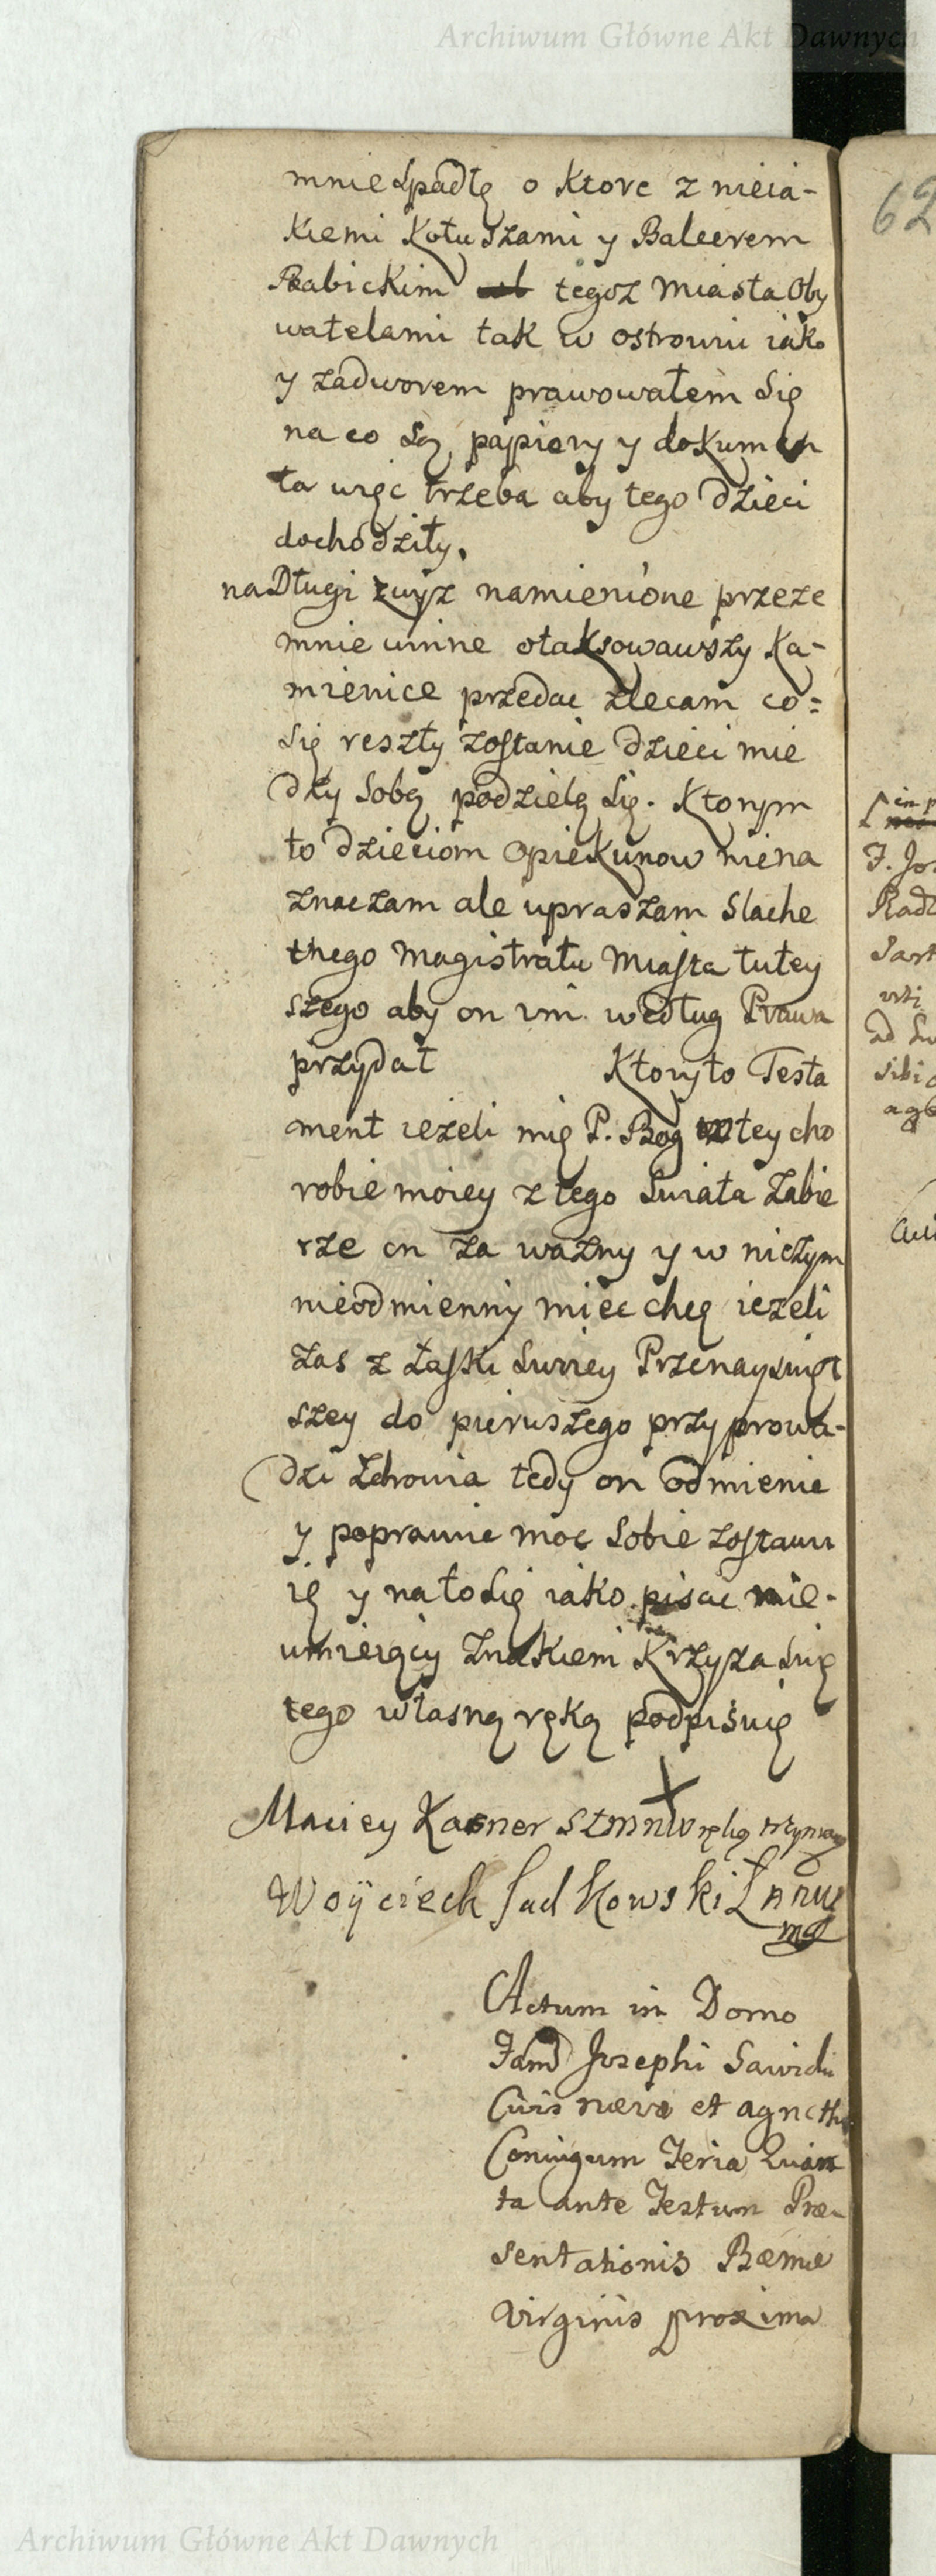 Archiwum Główne Akt Dawnych
mnie Spadłę o Ktore z nieia-
kiemi Kotuszami y Balcerem
Babickim tegoz Miasta Oby
watelami tak w ostrowiu iako
y zadworem prawowałem Się
na co Są papiery y dokumen
ta więc trzeba aby tego dzieci
dochodziły.
na Długi zwyz namienióne przeze
mnie winne otaksowawszy Ka-
mienice przedac zlecam co=
Się reszty zostanie dzieci mie
dzy Sobą podzielą Się. Ktorym
to dzieciom Opiekunow niena
znaczam ale upraszam Slache
tnego Magistratu Miasta tutey
szego aby on im według Prawa
przydał Ktoryto Testa
ment ieżeli mię P. Bog w tey cho
robie moiey z tego Swiata Zabie
rze on za wazny y w niczym
nieodmienny miec chcę iezeli
Zas z Łaski Swey Przenayswięt
szey do pierwszego przyprowa-
dzi Zdrowia tedy on odmienie
y poprawie moc Sobie zostawu
ię y nato Się iako pisac nie-
umieiący Znakiem Krzyza Swię
tego własną ręką podpisuię
X
Maciey Kasner ręką trzymaną
Woyciech Sadkowski Ławn
mp
Actum in Domo
Fam Josephi Sawicki
Civis et agnethis
Coniugum Feria Quin
ta ante Festum Præ
sentationis Bæmæ
Virginis proxima
62
in p
F. Jos
Radz
ad Su
sibi
Archiwum Główne Akt Dawnych